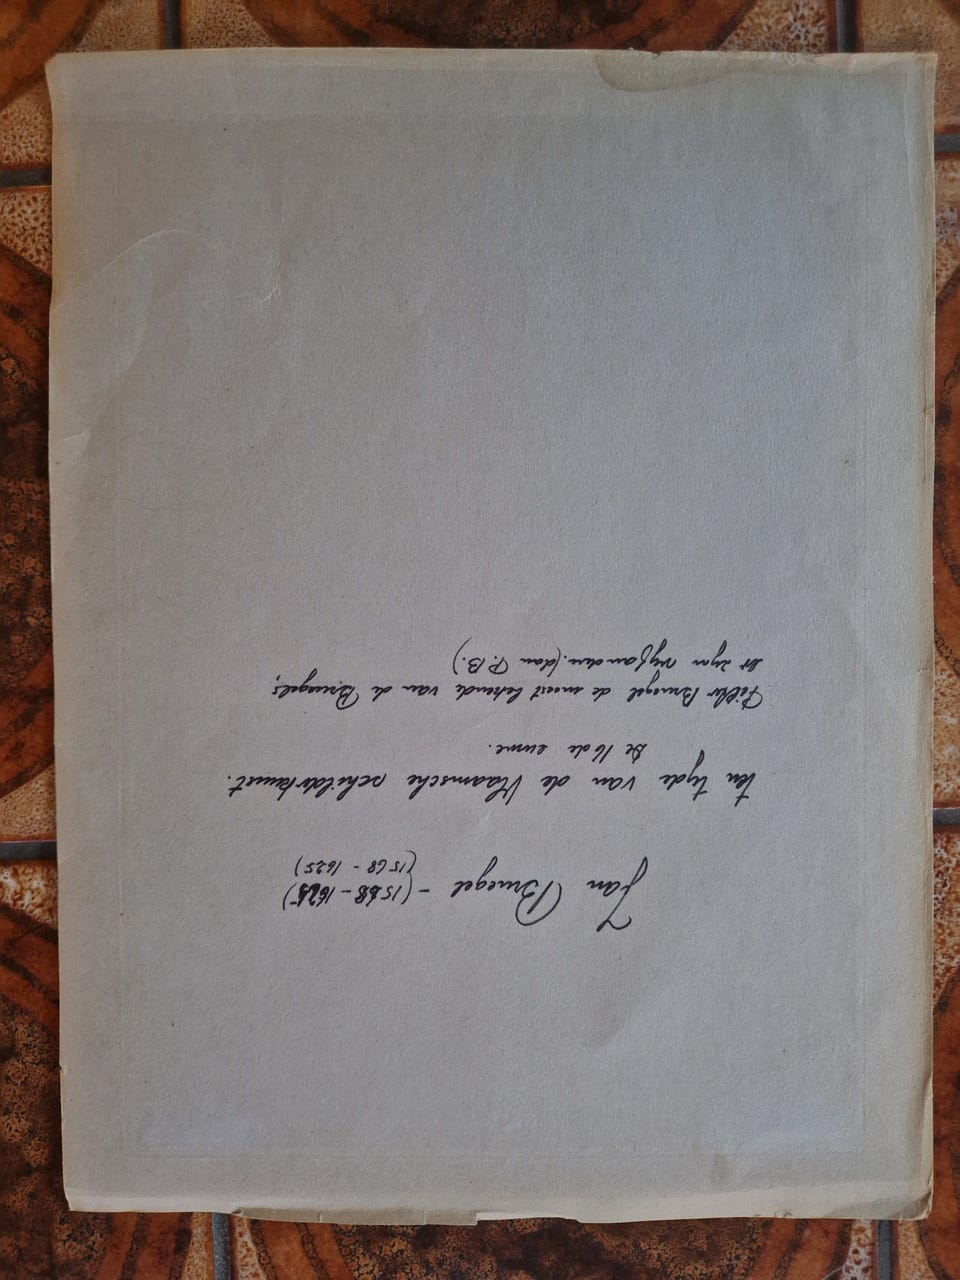 Jan Bruegel - (1568 - 1625)
(1568 - 1625)
ten tyde van de Vlaamsche schilderkunst.
De 16de eeuwe.
Bruegel de meest bekende van de Bruegels,
(dan P.B.)